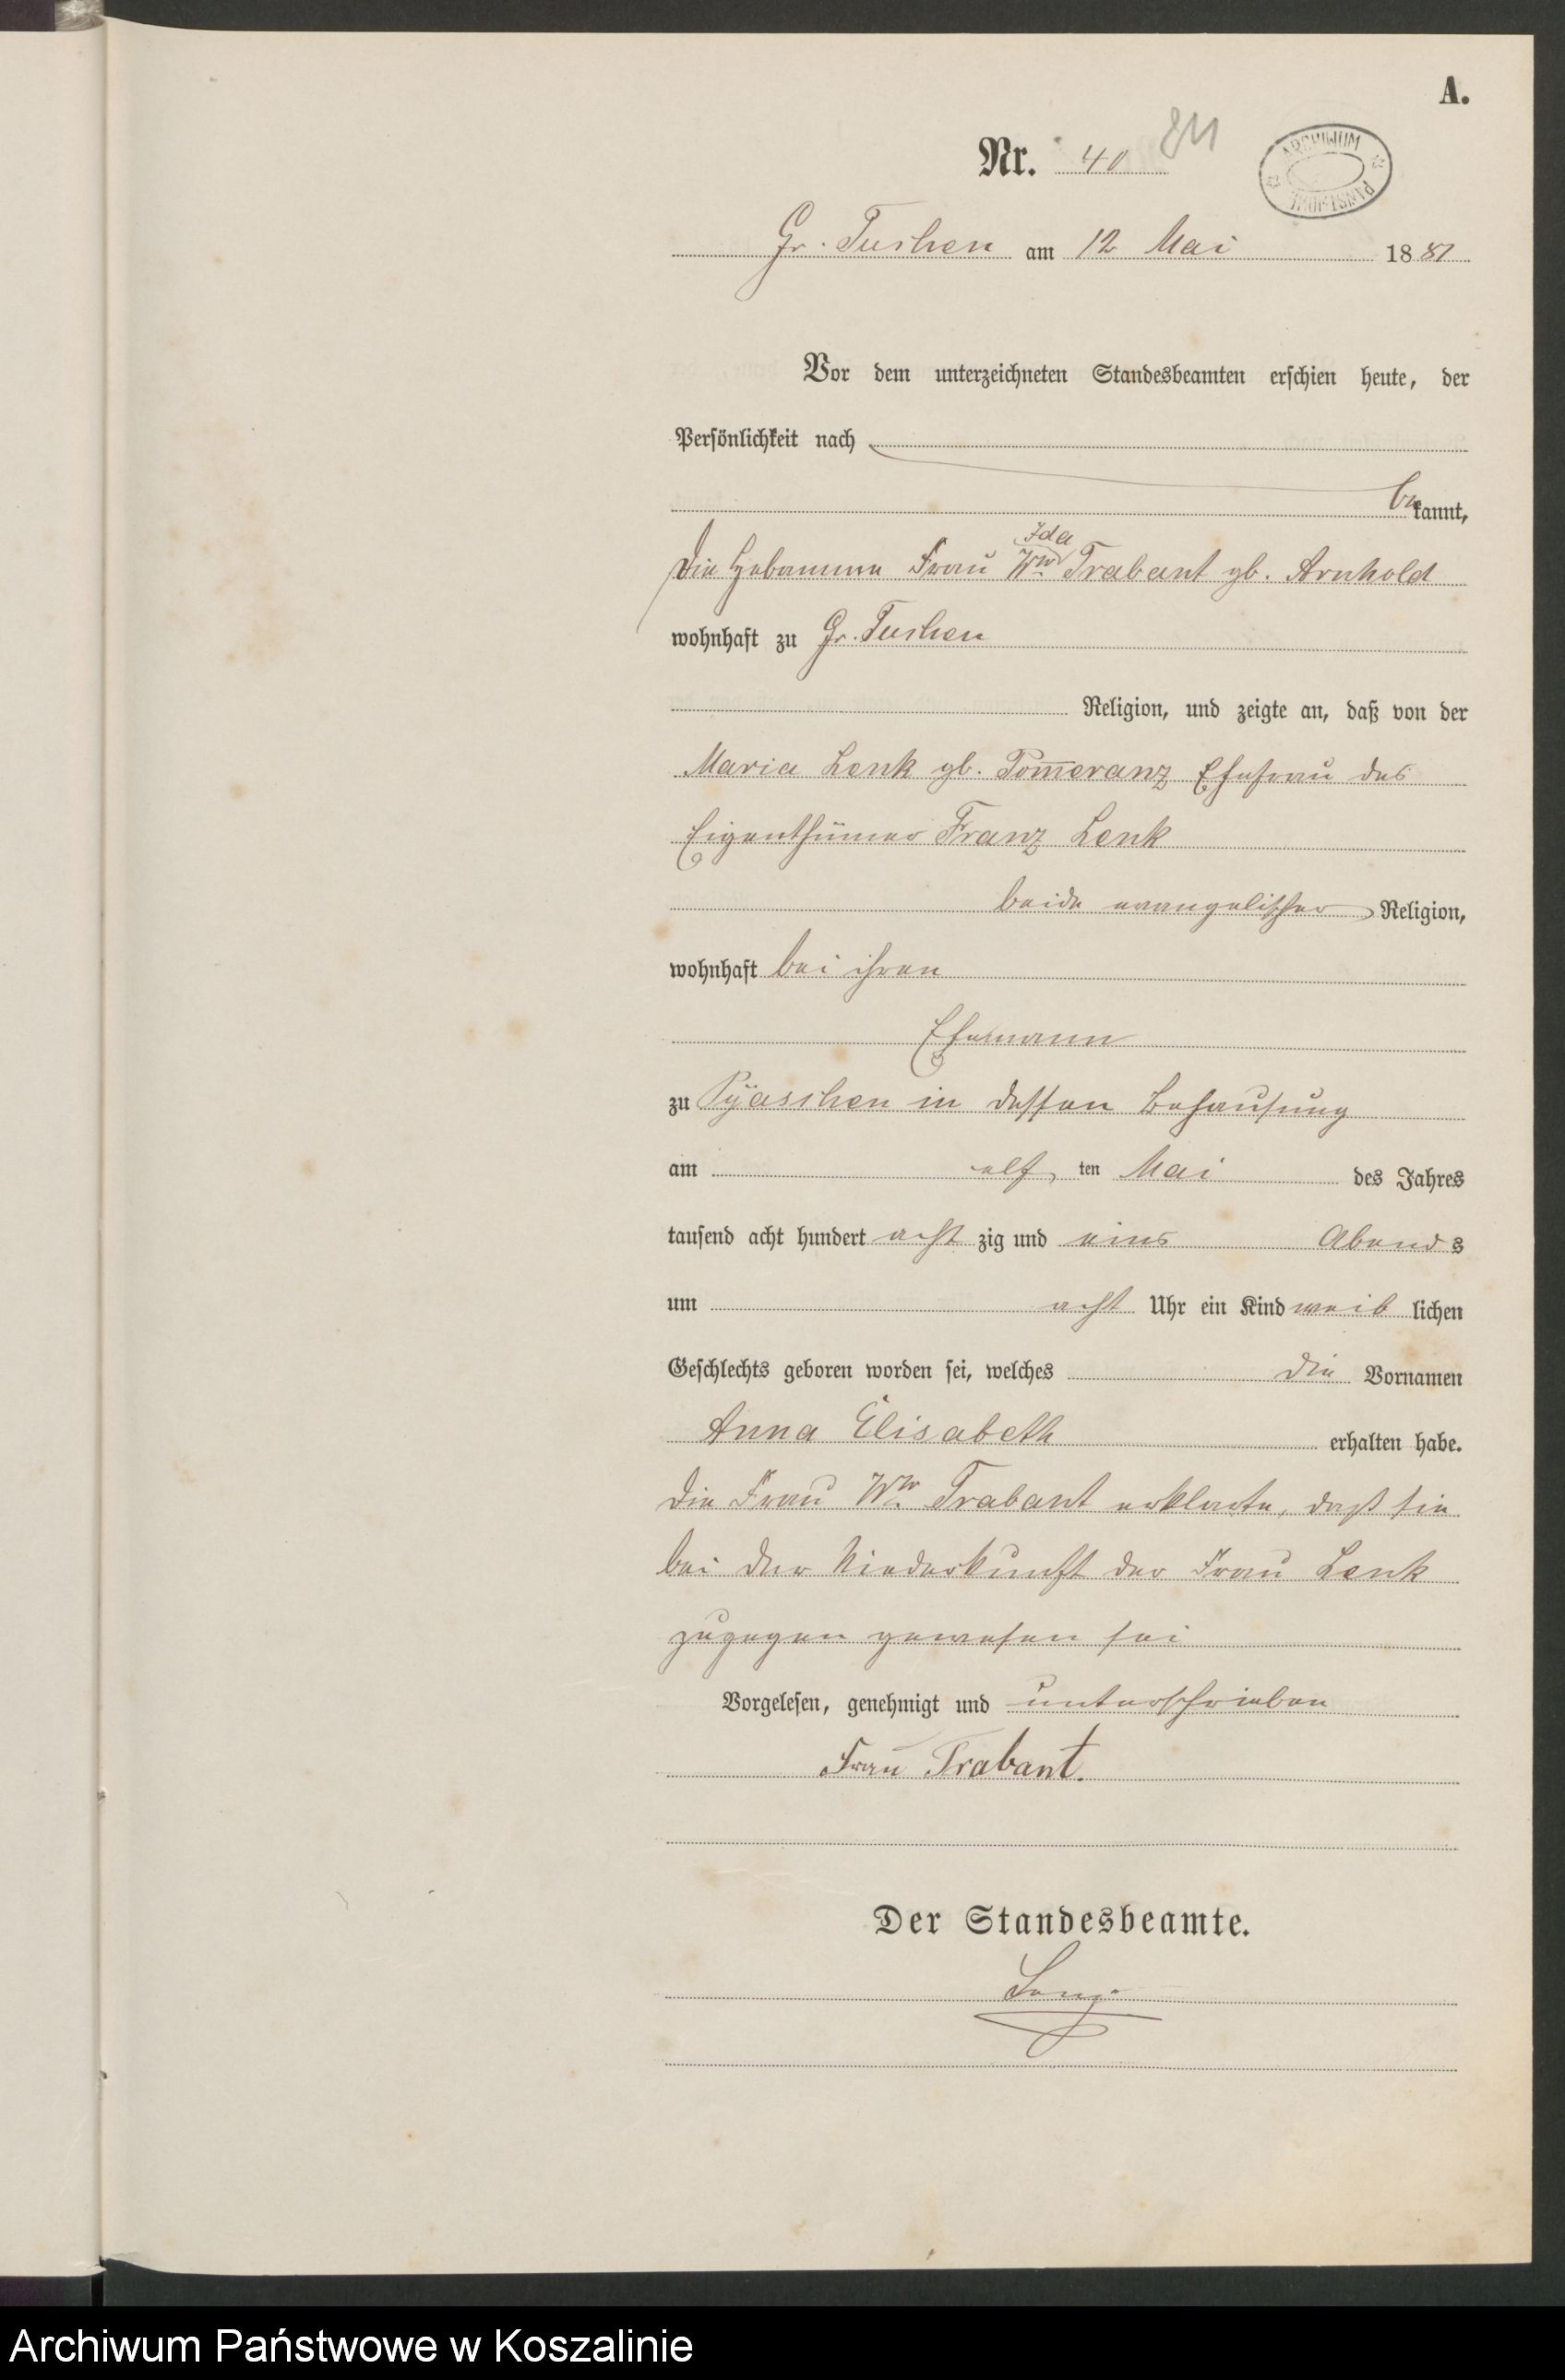 A.
Nr. 40 84
ARCHIWUM PAŃSTWOWE
Gr. Tuchen am 12 Mai 1881
Vor dem unterzeichneten Standesbeamten erschien heute, der
Persönlichkeit nach
bekannt,
Ida
die Hebamme Frau Ww Trabant gb. Arnhold
wohnhaft zu Gr. Tuchen
Religion, und zeigte an, daß von der
Maria Lenk gb. Pom̅eranz Ehefrau des
Eigenthümer Franz Lenk
beide evangelischer Religion,
wohnhaft bei ihren
Ehemann
zu Pyaschen in dessen Behausung
am elf ten Mai des Jahres
tausend acht hundert acht zig und eins Abends
um acht Uhr ein Kind weib lichen
Geschlechts geboren worden sei, welches die Vornamen
Anna Elisabeth erhalten habe.
Die Frau Ww Trabant erklarte, daß sie
bei der Niederkunft der Frau Lenk
zugegen gewesen sei
Vorgelesen, genehmigt und unterschrieben
Frau Trabant.
Der Standesbeamte.
Archiwum Państwowe w Koszalinie